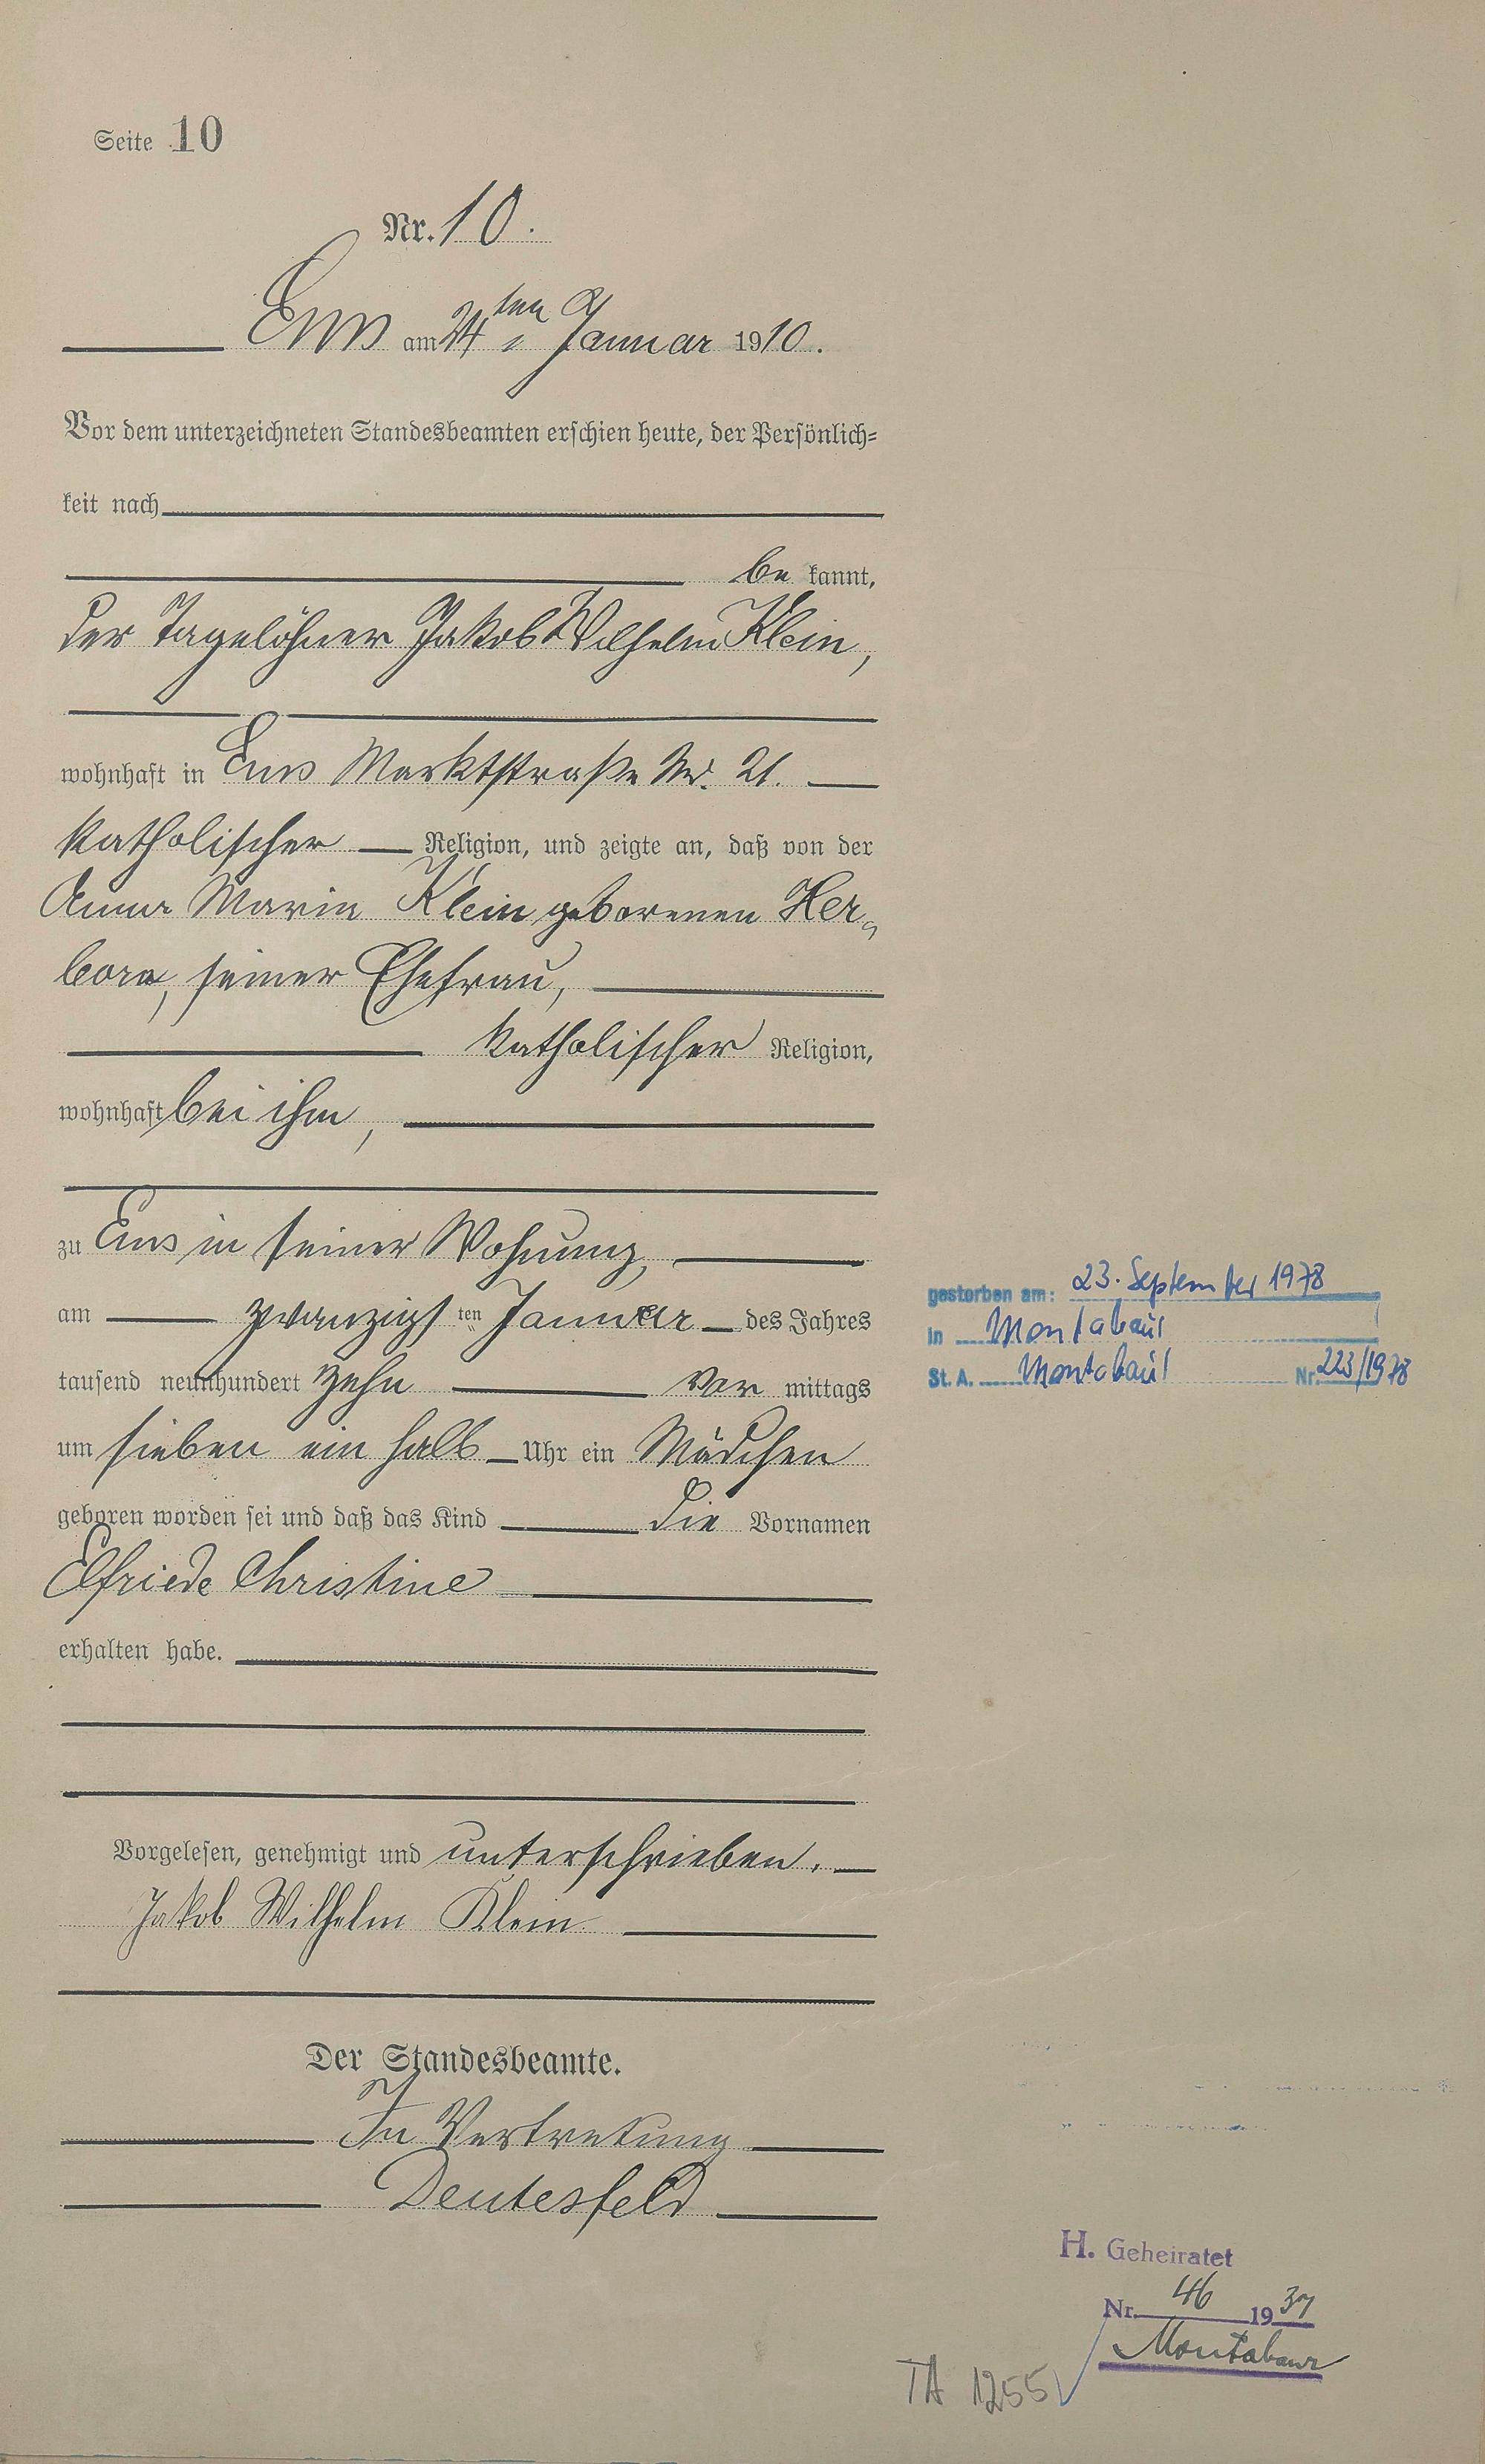 Seite 10
Nr. 10.
Ems am 24ten Januar 1910.
Vor dem unterzeichneten Standesbeamten erschien heute, der Persönlich=
keit nach
be kannt,
der Tagelöhner Jakob Wilhelm Klein,
wohnhaft in Ems Marktstraße Nr. 21.
katholischer Religion, und zeigte an, daß von der
Anna Maria Klein geborenen Her„
born, seiner Ehefrau,
katholischer Religion,
wohnhaft bei ihm,
zu Ems in seiner Wohnung,
am zwanzigsten Januar des Jahres
tausend neunhundert zehn vor mittags
um sieben ein halb Uhr ein Mädchen
geboren worden sei und daß das Kind die Vornamen
Elfriede Christine
erhalten habe.
Vorgelesen, genehmigt und unterschrieben.
Jakob Wilhelm Klein
Der Standesbeamte.
In Vertretung
Deutesfeld
gestorben am: 23. September 1978
in Montabaur
St. A. Montabaur Nr. 223/1978
H. Geheiratet
Nr. 46 1937
Montabaur
TA 1255